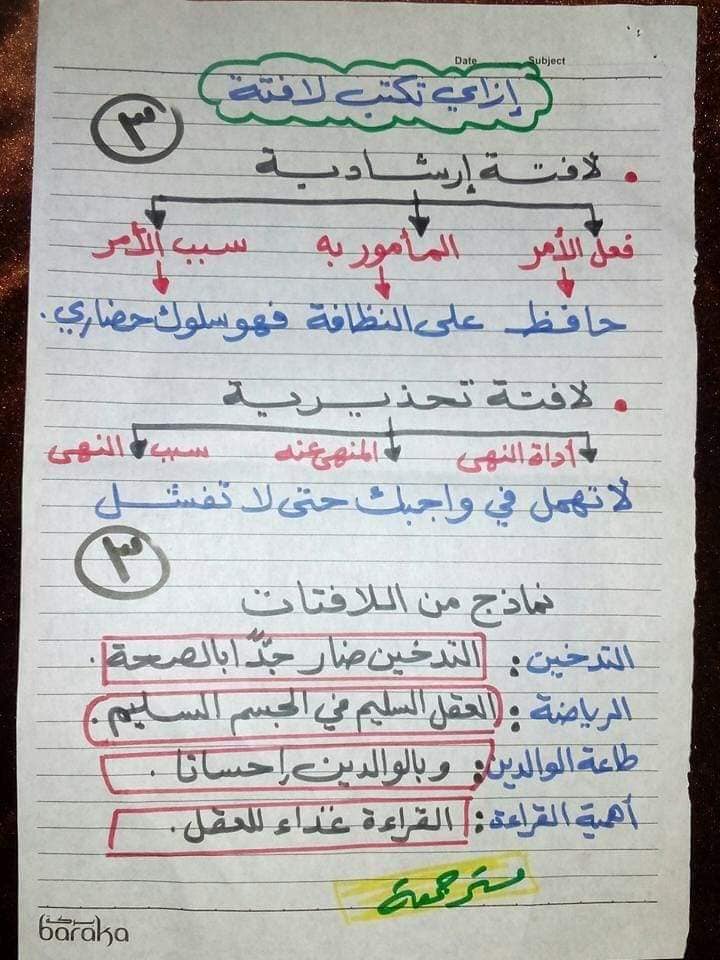 Date Subject
إزاي تكتب لافتة
٣
• لافتة إرشادية
فعل الأمر المأمور به سبب الأمر
حافظ على النظافة فهو سلوك حضاري.
• لافتة تحذيرية
أداة النهى المنهى عنه سبب النهى
لا تهمل في واجبك حتى لا تفشل
٣
نماذج من اللافتات
التدخين: التدخين ضار جدًّا بالصحة.
الرياضة: العقل السليم في الجسم السليم.
طاعة الوالدين: وبالوالدين إحسانا.
أهمية القراءة: القراءة غذاء للعقل.
بركة
baraka